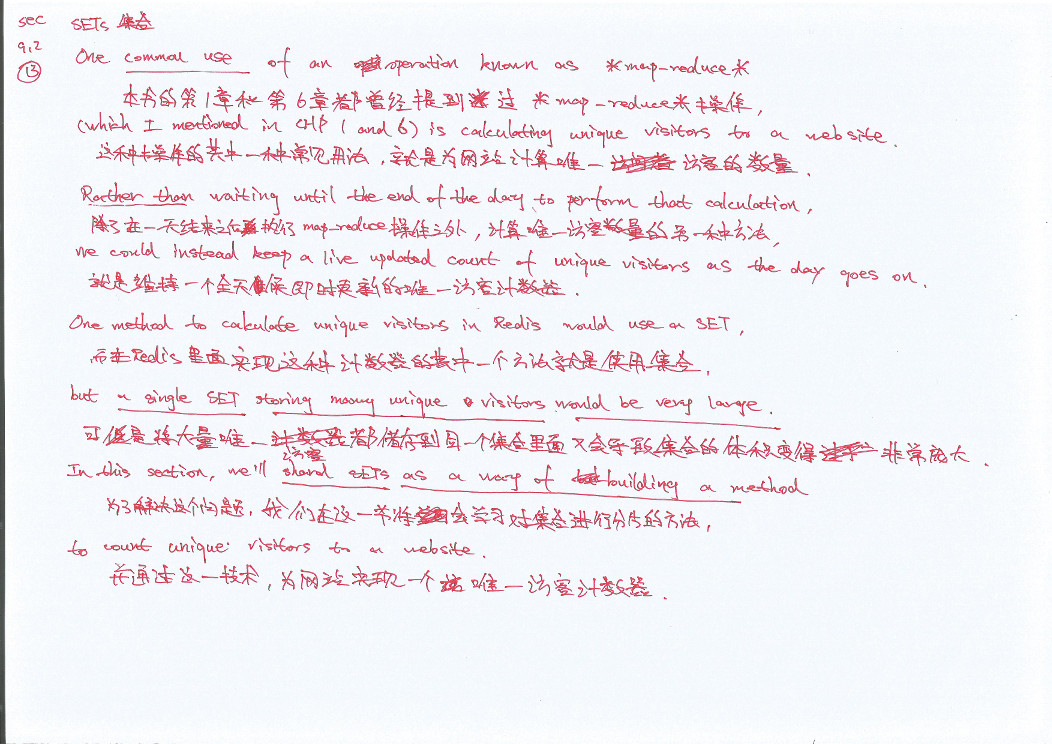 sec SETs 集合
9.2
⑬ One common use of an operation known as *map-reduce*
本书的第1章和第6章都曾经提到过 *map-reduce*操作,
(which I mentioned in CHP 1 and 6) is calculating unique visitors to a website.
这种操作的其中一种常见用法, 就是为网站计算唯一访客的数量.
Rather than waiting until the end of the day to perform that calculation,
除了在一天结束之后执行map-reduce操作之外, 计算唯一访客数量的另一种方法,
we could instead keep a live updated count of unique visitors as the day goes on.
就是维持一个全天候即时更新的唯一访客计数器.
One method to calculate unique visitors in Redis would use a SET,
而在Redis里面实现这种计数器的其中一个方法就是使用集合,
but a single SET storing many unique visitors would be very large.
可但是将大量唯一访客都储存到同一个集合里面又会导致集合的体积变得非常庞大.
In this section, we'll shard SETs as a way of building a method
为了解决这个问题, 我们在这一节将会学习对集合进行分片的方法,
to count unique visitors to a website.
并通过这一技术, 为网站实现一个唯一访客计数器.